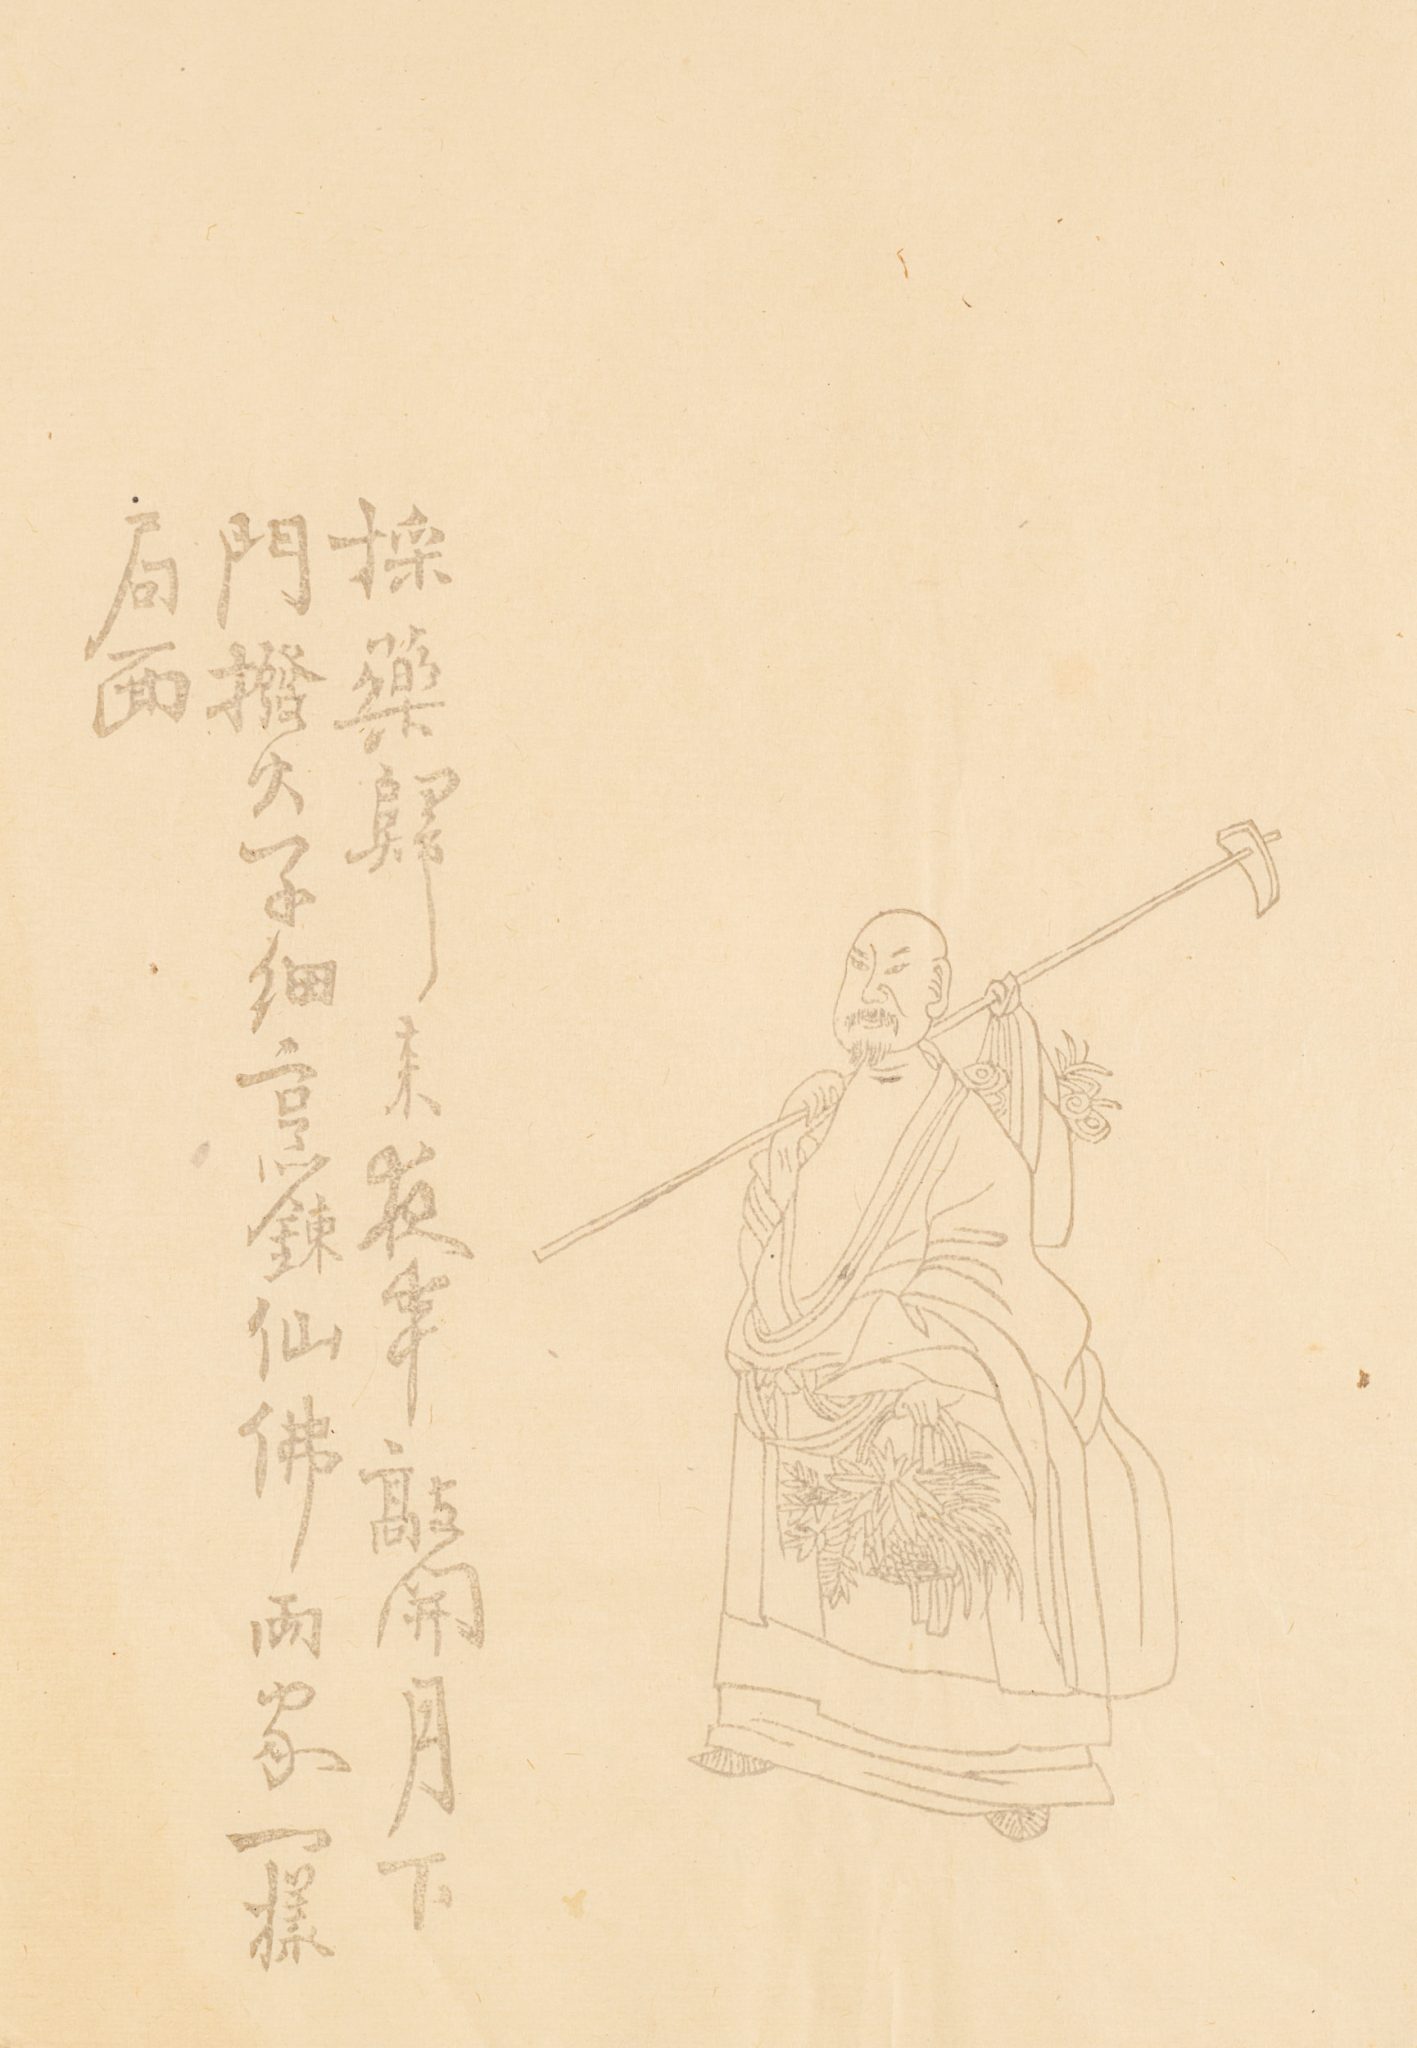 採藥歸来夜半敲開月下
門撥火子細烹鍊仙佛兩家一樣
局面